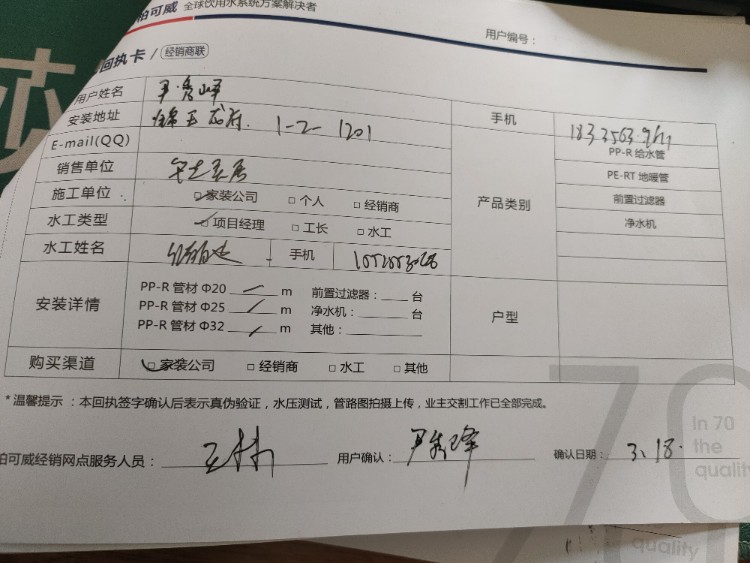 柏可威 全球饮用水系统方案解决者
用户编号：
回执卡 / 经销商联
用户姓名 尹秀峰 手机
安装地址 1-2- 1201
E-mail(QQ) 产品类别 PP-R 给水管
销售单位 PE-RT 地暖管
施工单位 □家装公司 □个人 □经销商 前置过滤器
水工类型 □项目经理 □工长 □水工 净水机
水工姓名 手机
安装详情 PP-R 管材 Φ20 m 前置过滤器： 台 户型
PP-R 管材 Φ25 m 净水机： 台
PP-R 管材 Φ32 m 其他：
购买渠道 □家装公司 □经销商 □水工 □其他
*温馨提示：本回执签字确认后表示真伪验证，水压测试，管路图拍摄上传，业主交割工作已全部完成。
柏可威经销网点服务人员： 王林 用户确认： 尹秀峰 确认日期： 3.18.
70
In 70
the
quality
quality